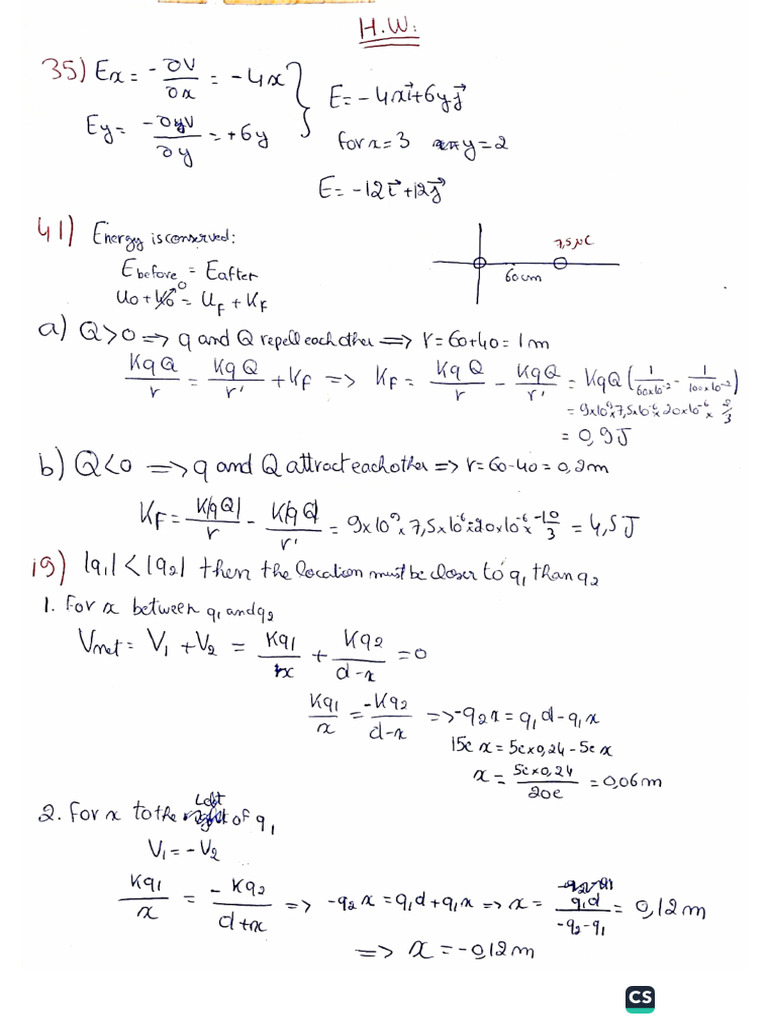 H.W:
35) Ex = -∂V/∂x = -4x } E = -4xi⃗ + 6yj⃗
Ey = -∂V/∂y = +6y
for x = 3 y = 2
E = -12i⃗ + 12j⃗
41) Energy is conserved:
7,5 μC
60cm
Ebefore = Eafter
U0 + K0 = UF + KF
0
a) Q>0 => q and Q repell each other => r = 60+40 = 1m
KqQ/r = KqQ/r' + KF => KF = KqQ/r - KqQ/r' = KqQ(1/60x10^-2 - 1/100x10^-2)
= 9x10^9 x 7,5x10^-6 x 20x10^-6 x 2/3
= 0,9J
b) Q<0 => q and Q attract each other => r = 60-40 = 0,2m
KF = K|qQ|/r - K|qQ|/r' = 9x10^9 x 7,5x10^-6 x -20x10^-6 x -10/3 = 4,5J
19) |q1| < |q2| then the location must be closer to q1 than q2
1. For x between q1 and q2
Vnet = V1 + V2 = Kq1/x + Kq2/d-x = 0
Kq1/x = -Kq2/d-x => -q2x = q1d - q1x
15e x = 5e x 0,24 - 5e x
x = 5e x 0,24/20e = 0,06m
2. For x to the Left of q1
V1 = -V2
Kq1/x = -Kq2/d+x => -q2x = q1d + q1x => x = q1d/-q2-q1 = 0,12m
=> x = -0,12m
CS